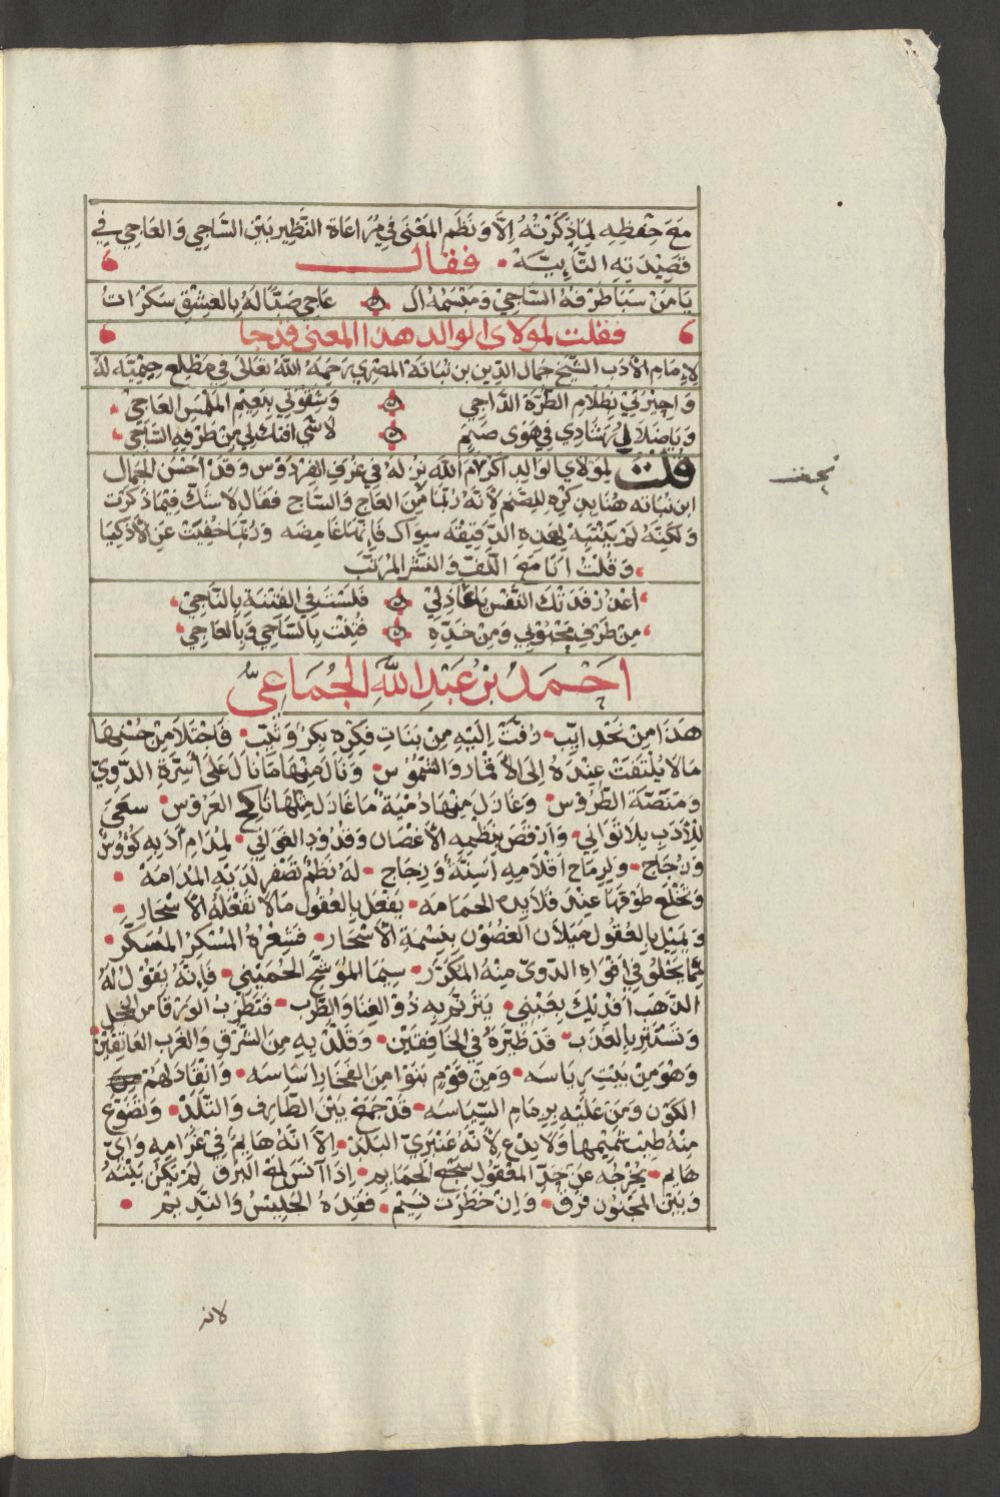 مَعَ حِفظِهِ لِمَا ذَكَرْتُهُ اِلَّا وَنَظَم المَعْنَى فِي مُرَاعَاة النَّظِير بَيْن السَّاجِي وَالعَاجِي فِي
قَصِيْدَتِهِ التَّائِيَّة • فقال
يَا مَنْ سَبَا طَرْفهُ السَّاجِيْ وَمَبْسَمُهُ ال عَاجِي صَبًّا لَهُ بِالعِشْقِ سَكْرَاتُ
فقلت لمولاى الوالد هذا المعنى قد جا
لامام الأدب الشَّيْخ جمال الدِّين بن نباتة المصري رَحِمَهُ اللهُ تعَالى فِي مَطْلع جِيْمِيَّه لهُ
وَاحِيْرَتِيْ بِظَلَامِ الطُّرَّةِ الدَّاجِي وَشِقْوَتي بِنَعِيْمِ المَلْمَسِ العَاجِي
وَيَا ضَلَالِي رَشَادِي فِي هَوَى صَنَمٍ لَا شَي افتك لي مِنْ طَرْفِهِ السَّاجِي
قلت لمولاي الوالد اكرم الله نزله في غرف الفردوس وقد أحسن الجمال
ابن نباته هنا بذكره للصنم لأنه ربما من العاج والساج فقال لا شك فيما ذكرت
وَلكِنَّهُ لَمْ يَنْتَبِهْ لِهَذِهِ الدَّقِيْقَه سِوَاك فَاِنَّهَا غَامِضَه وَرُبَّمَا خَفِيَتْ عَنِ الأذكِيَا
وَقُلْتُ انَا مَعَ اللَّفِّ وَالنَّشْر المُرَتَّب
اُعْذُرْ فَدَتْكَ النَّفْس يَا عَاذِلِيْ فَلَسْتَ فِي الفِتْنَةِ بِالنَّاجِيْ
مِنْ طَرْفِ مَحْبُوْبِي وَمِنْ خَدِّهِ فُتِنْت بِالسَّاجِي وَبِالعَاجِي
نحفت
احْمَدُ بْنُ عَبْدِ اللهِ الجُمَاعِيُّ
هَذَا مِنْ نَحْدِ اديْب • زُفَّتْ اِلَيْهِ مِنْ بَنَاتِ فِكْرِه بِكرٌ وَثَيِّبْ • فَاجْتَلَا مِنْ حُسْنِهَا
مَا لَا يُلْتَفَتُ عِنْدَهُ إِلَى الأَقْمَار وَالشُّمُوْس • وَنَالَ مِنْهَا مَا نَالَ عَلَى أسِرَّةِ الدَّوِيِّ
وَمَنَصَّة الطُّرُوْس • وَغَازَلَ مِنْهَا دُمْيَة مَا غَازَلَ مِثلهَا نَاكح العَرُوْس • سَعَى
لِلأَدَبِ بِلَا تَوَانِي • وَارْقَصَ بِنَظْمِهِ الأَغْصَان وَقُدُوْد الغَوَانِي • لِمُدَامِ أَدَبِهِ كُؤُوسٌ
وَزُجَاج • وَلِرِمَاحِ اقْلَامِهِ اَسِنَّةٌ وَزِجَاج • لَهُ نَظْمٌ تَصْفر لدَيْهِ المُدَامَهْ •
وَتَخْلَع طَوْقَهَا عِنْدَ قَلَايده الحَمَامَه • يَفْعَل بِالعُقُولِ مَا لَا تَفْعَلُهُ الأَسْحَار •
وَيَمِيْل بِالعُقُول مَيَلَان الغصُوْن بِنَسْمَةِ الأَسْحَار • فَشِعْرُهُ المُسْكِرُ المُسَكَّر •
مِمَّا يَحْلُوْ فِي افْوَاهِ الدَّوِيِّ مِنْهُ المُكَرَّرْ • سِيَمَا المُوَشَّح الحُمَيْنِي • فَاِنَّهُ يَقُوْلُ لَهُ
الذَّهَب افْدِيْكَ بِعَيْنِي • يَتَرَنَّم بِهِ ذُوْ الغِنَا وَالطَّرَب • فَتَطْرَبُ الوَرْقَا مِن الخجل
وَتَسْتَتِرُ بِالعَذَب • قَدْ طَيَّرَهُ فِي الخَافِقَيْن • وَقَلَّدَ بِهِ مِنَ الشَّرْقِ وَالغَرْب العَاتِقَيْن
وَهُوَ مِنْ بَيْتِ رِيَاسَه • وَمِنْ قَوْمٍ بَنَوْا مِنَ الفَخَارِ اَسَاسَه • وَانْقَادَ لَهُمْ
الكَوْن وَمَنْ عَلَيْهِ بِزِمَامِ السِّيَاسَه • قَدْ جَمَعَ بَيْنَ الطَّارِفِ وَالتَّلَدْ • وَتَضَوَّع
مِنْهُ طِيْب شَمِيْمِهَا وَلَا بِدْع لِأَنَّهُ عَنْبَرِيّ البَلَدْ • اِلَّا انَّهُ هَايِمٌ فِي غَرَامِهِ وَايّ
هَايِم • يُخْرِجُه عَنْ حَدِّ المَعْقُول سَجْع الحَمَايِم • اِذَا آنَسَ لَمْعَ البَرْقِ لَمْ يَكُنْ بَيْنَهُ
وَبَيْنَ المَجْنُون فَرْق • وَاِنْ خَطَرَتْ نَسِيْم • فَقَدَهُ الجَلِيْسُ وَالنَّدِيْم •
لانه